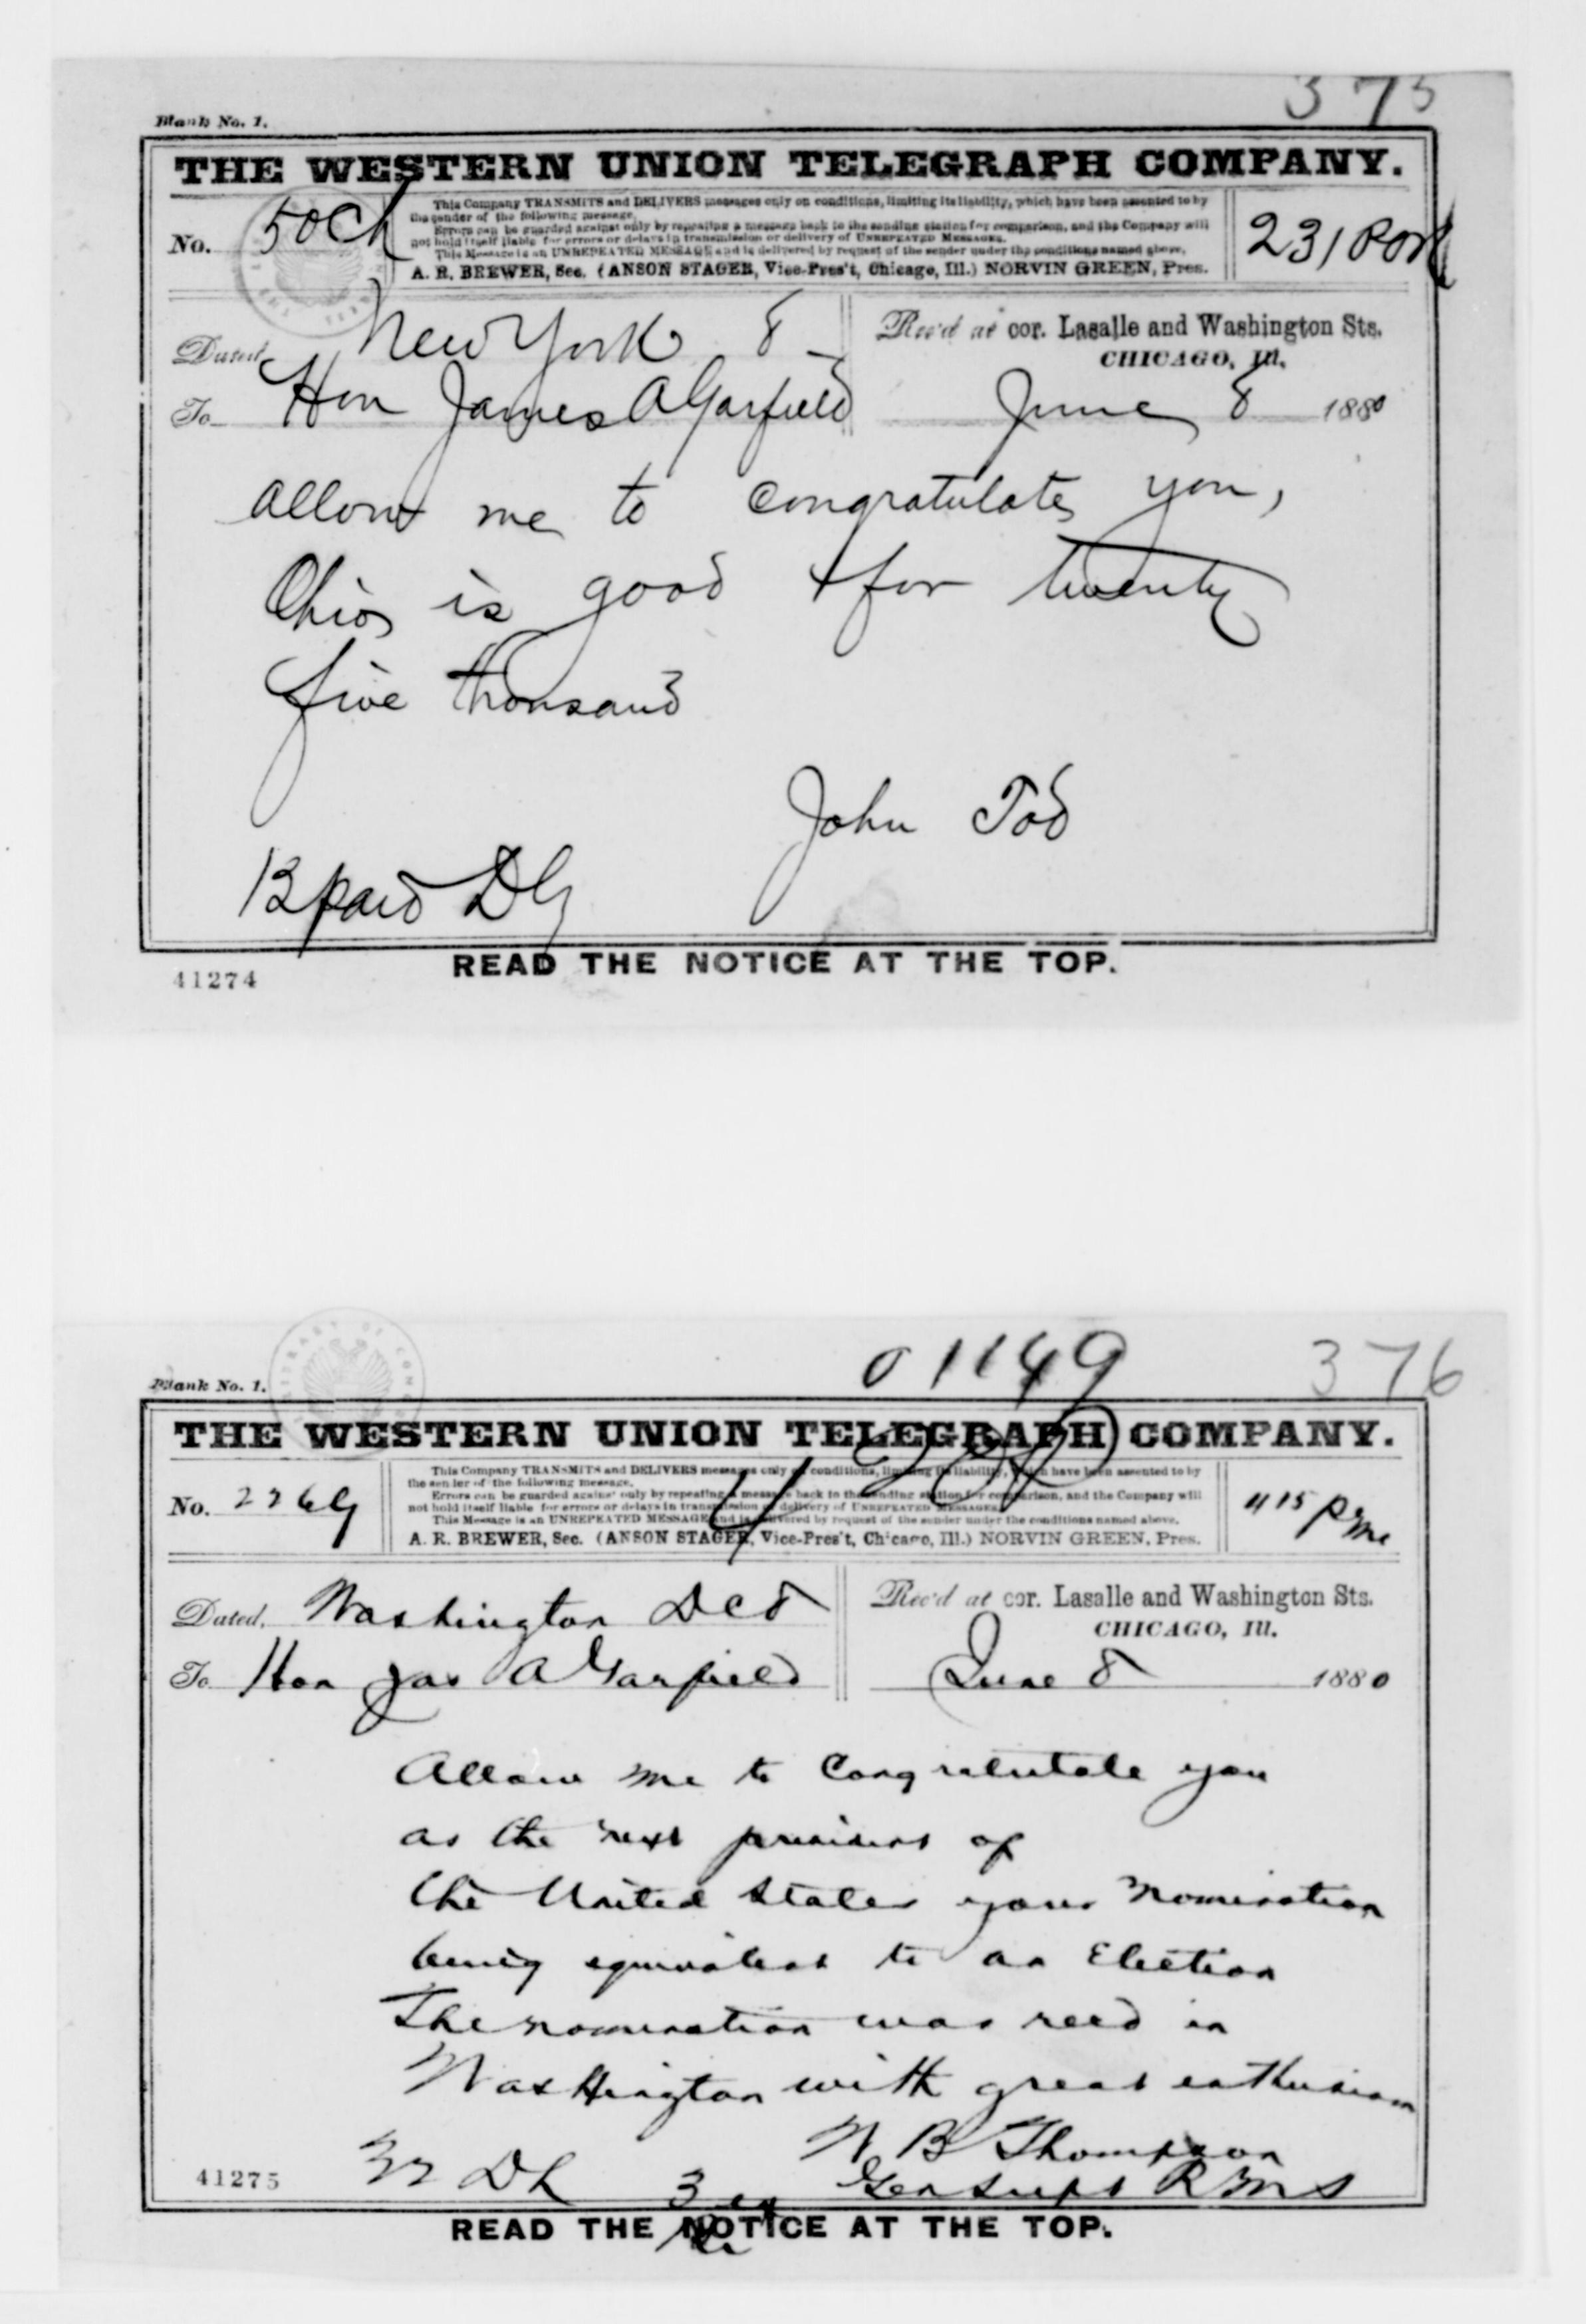 375
Blank No. 1.
THE WESTERN UNION TELEGRAPH COMPANY.
This Company TRANSMITS and DELIVERS messages only on conditions, limiting its liability, which have been assented to by
the sender of the following message.
Errors can be guarded against only by repeating a message back to the sending station for comparison, and the Company will
not hold itself liable for errors or delays in transmission or delivery of UNREPEATED MESSAGES.
This Message is an UNREPEATED MESSAGE and is delivered by request of the sender under the conditions named above.
A. R. BREWER, Sec. (ANSON STAGER, Vice-Pres't, Chicago, Ill.) NORVIN GREEN, Pres.
No. 50 Ch
231
Dated New York 8
Rec'd at cor. Lasalle and Washington Sts.
CHICAGO, Ill.
To Hon James A Garfield
June 8 1880
allow me to congratulate you,
Ohio is good for twenty
five thousand
John Tod
13 paid
41274
READ THE NOTICE AT THE TOP.
376
Blank No. 1.
THE WESTERN UNION TELEGRAPH COMPANY.
This Company TRANSMITS and DELIVERS messages only on conditions, limiting its liability, which have been assented to by
the sender of the following message.
Errors can be guarded against only by repeating a message back to the sending station for comparison, and the Company will
not hold itself liable for errors or delays in transmission or delivery of UNREPEATED MESSAGES.
This Message is an UNREPEATED MESSAGE and is delivered by request of the sender under the conditions named above.
A. R. BREWER, Sec. (ANSON STAGER, Vice-Pres't, Chicago, Ill.) NORVIN GREEN, Pres.
No.
415 Pm
Dated, Washington DC 8
Rec'd at cor. Lasalle and Washington Sts.
CHICAGO, Ill.
To Hon Jas A Garfield
June 8 1880
Allow me to Congratulate you
as the next president of
the United States your nomination
being equivalent to an Election
The nomination was recd in
Washington with great enthusiasm
W B Thompson
Gen Supt R M S
41275
READ THE NOTICE AT THE TOP.